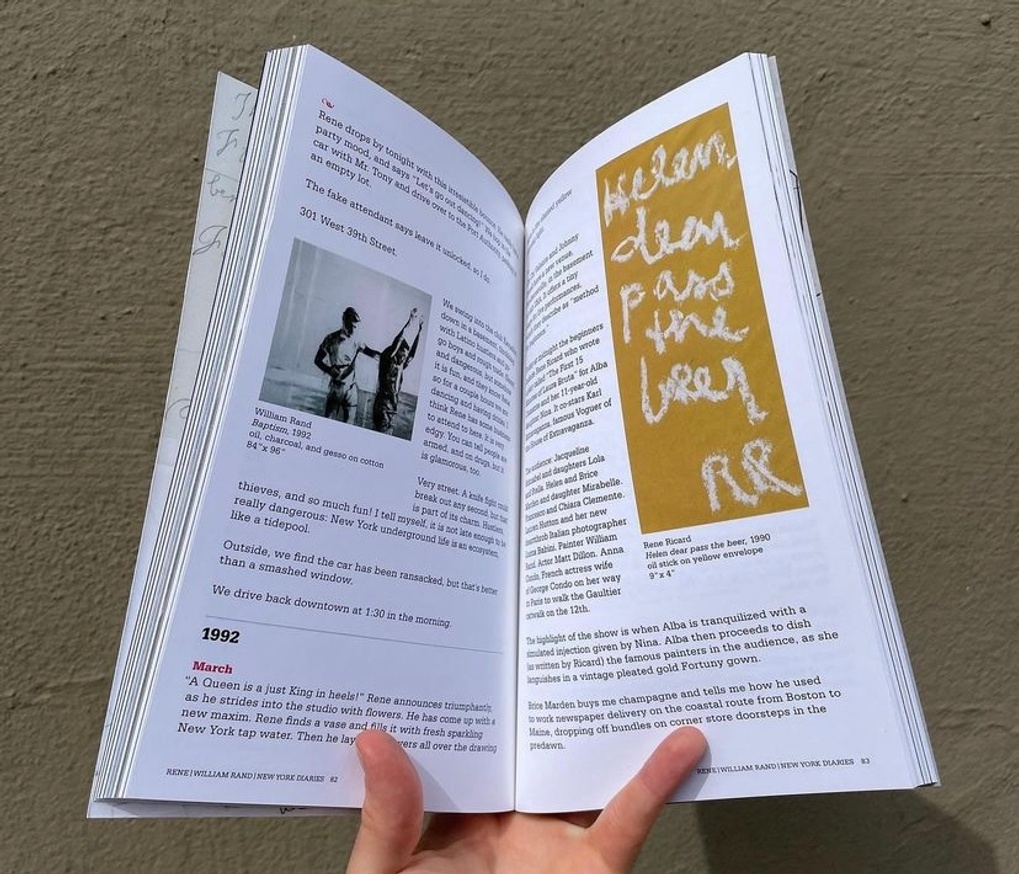 Rene drops by tonight with this irresistible bounce. He
party mood, and says "Let's go out dancing!" We hop in the
car with Mr. Tony and drive over to the Port Authority,
an empty lot.
The fake attendant says leave it unlocked, so I do.
301 West 39th Street.
We swing into the club
down in a basement,
with Latino hustlers and
go boys and rough trade.
and dangerous, but
it is fun, and they know
so for a couple hours we are
dancing and having drinks. I
think Rene has some business
to attend to here. It is very
edgy. You can tell people are
armed, and on drugs, but it
is glamorous, too.
William Rand
Baptism, 1992
oil, charcoal, and gesso on cotton
84"x 96"
Very street. A knife fight could
break out any second, but that
is part of its charm. Hustlers,
thieves, and so much fun! I tell myself, it is not late enough to be
really dangerous: New York underground life is an ecosystem,
like a tidepool.
Outside, we find the car has been ransacked, but that's better
than a smashed window.
We drive back downtown at 1:30 in the morning.
1992
March
"A Queen is a just King in heels!" Rene announces triumphantly,
as he strides into the studio with flowers. He has come up with a
new maxim. Rene finds a vase and fills it with fresh sparkling
New York tap water. Then he lay vers all over the drawing
RENE|WILLIAM RAND|NEW YORK DIARIES 82
painted yellow
light.
and Johnny
have a new venue,
in the basement
It offers a tiny
live performances,
they describe as "method
at midnight the beginners
Rene Ricard who wrote
called "The First 15
of Laura Bruta" for Alba
and her 11-year-old
Nina. It co-stars Karl
Xtravaganza, famous Voguer of
the House of Extravaganza.
The audience: Jacqueline
Schnabel and daughters Lola
and Stella. Helen and Brice
Marden and daughter Mirabelle.
Francesco and Chiara Clemente.
Lauren Hutton and her new
heartthrob Italian photographer
Luca Babini. Painter William
Rand. Actor Matt Dillon. Anna
Condo, French actress wife
of George Condo on her way
to Paris to walk the Gaultier
catwalk on the 12th.
Helen
dear
pass
the
beer
RR
Rene Ricard
Helen dear pass the beer, 1990
oil stick on yellow envelope
9"x 4"
The highlight of the show is when Alba is tranquilized with a
simulated injection given by Nina. Alba then proceeds to dish
(as written by Ricard) the famous painters in the audience, as she
languishes in a vintage pleated gold Fortuny gown.
Brice Marden buys me champagne and tells me how he used
to work newspaper delivery on the coastal route from Boston to
Maine, dropping off bundles on corner store doorsteps in the
predawn.
RENE|WILLIAM RAND|NEW YORK DIARIES 83